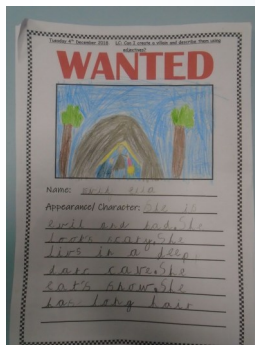 Tuesday 4th December 2018 LO: Can I create a villain and describe them using
adjectives?
WANTED
Name: evil ella
Appearance/ Character: She is
evil and bad. She
looks scary. She
livs in a deep
dark cave. She
eat's snow. She
has long hair